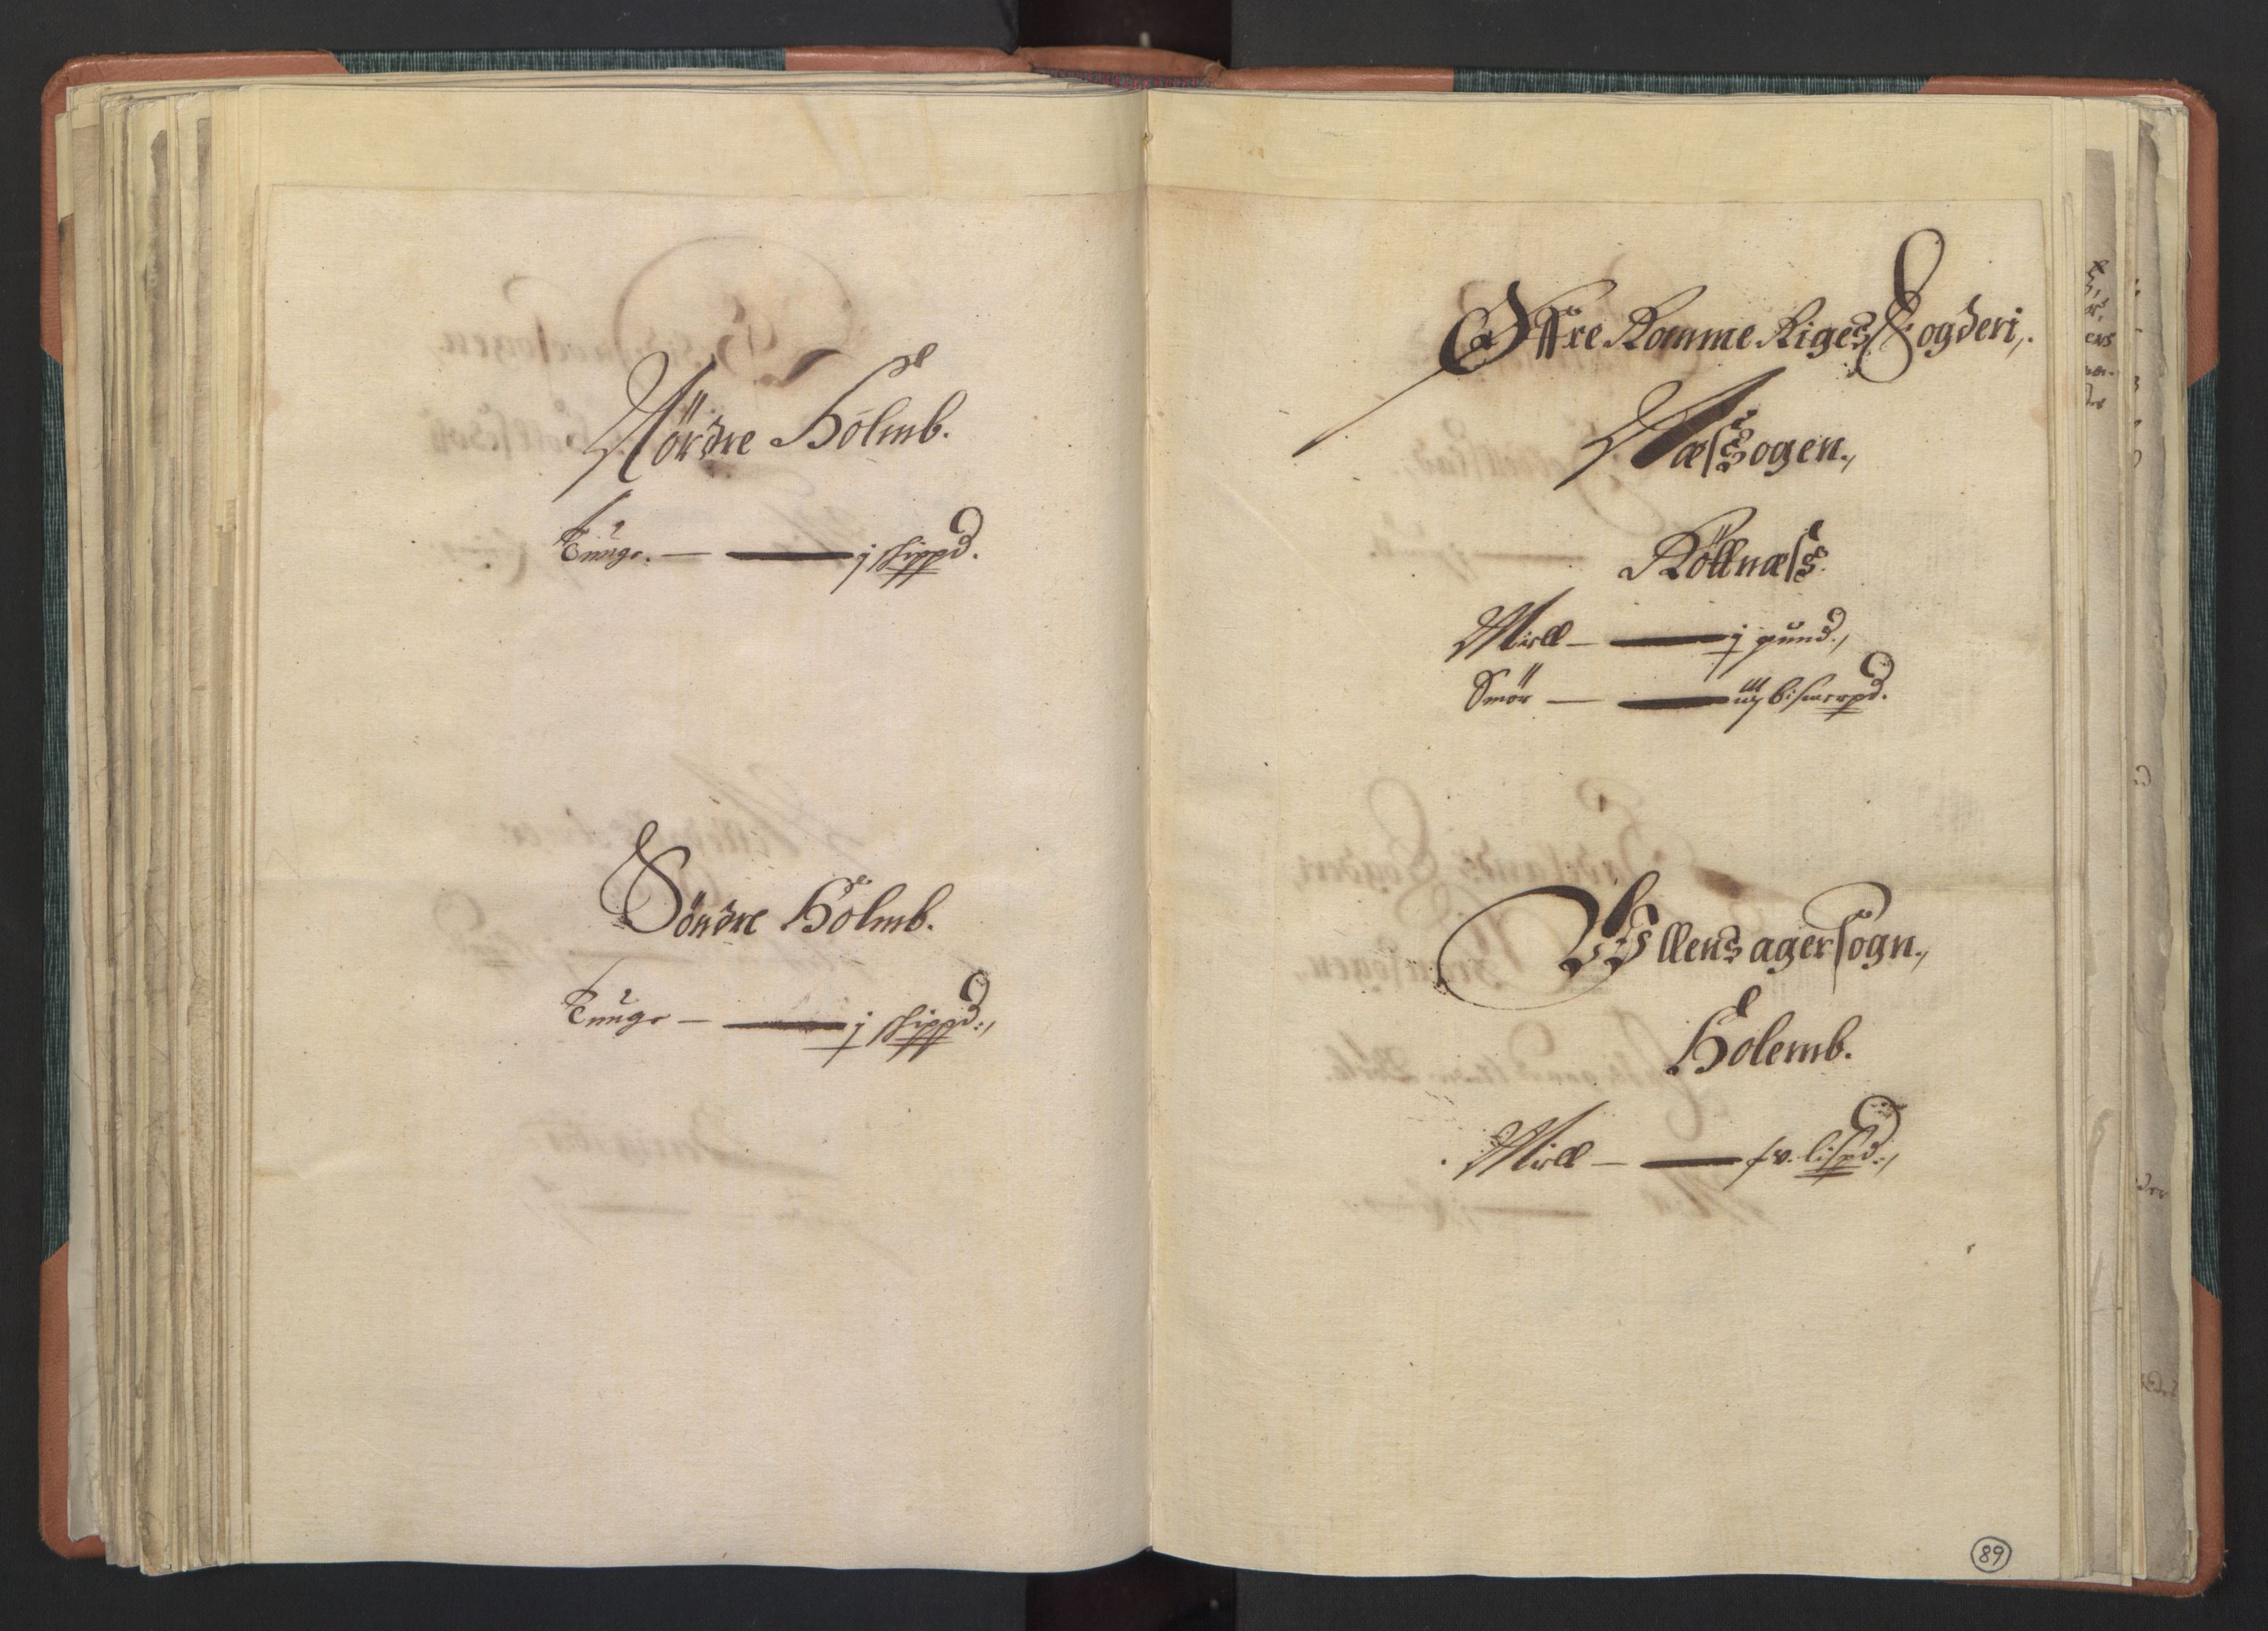 Nördre Hólmb.
Tunge. — — j skippd.
Söndre Hólmb.
Tunge — — j skippd:,
Öffre Romme Riges Fogderi,.
Næssogen.,
Röllnæss.
Miell — — j pund.,
Smör — — iij bismerpd.
Ullens ager sogn.,
Holemb.
Miell — — lispd:,
89